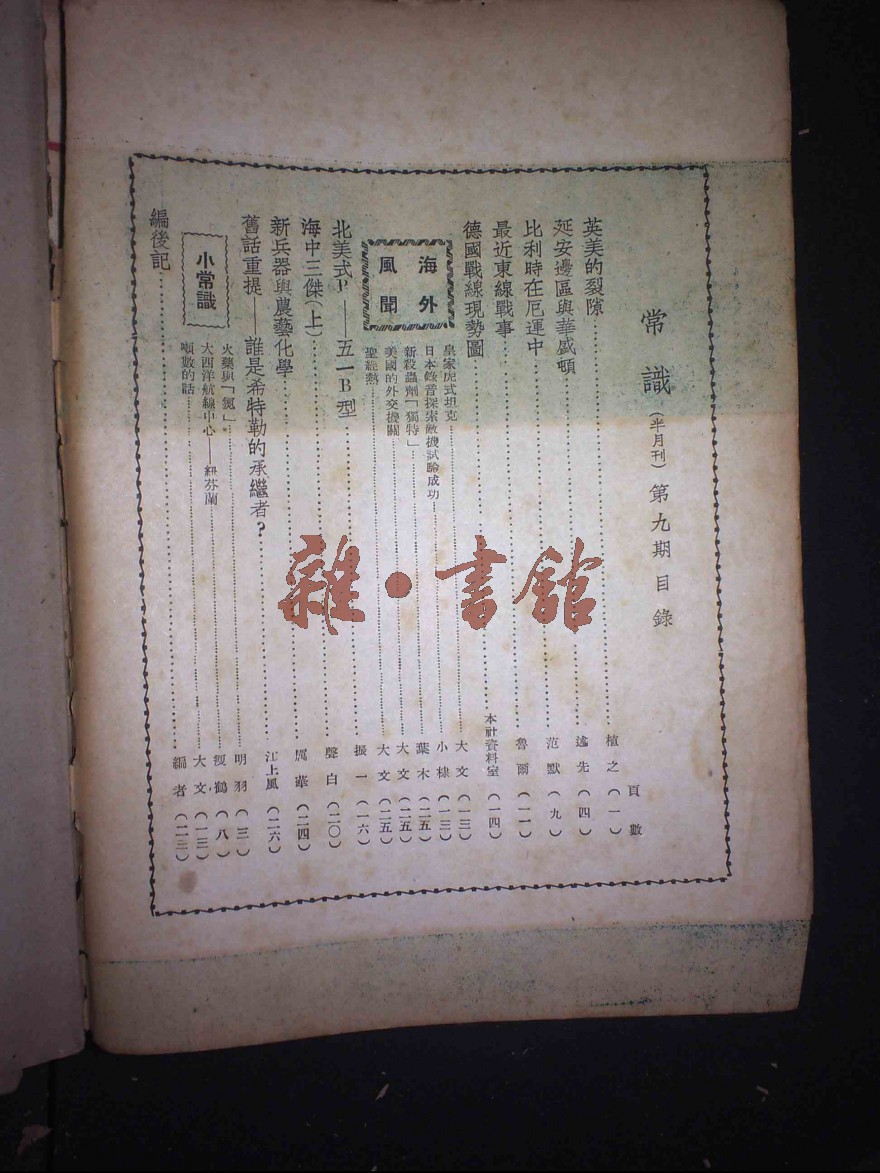 常識（半月刊）第九期目錄
頁數
英美的裂隙……植之（一）
延安邊區與華盛頓……述先（四）
比利時在厄運中……范默（九）
最近東線戰事……魯爾（一一）
德國戰線現勢圖……本社資料室（一四）
海外風聞
皇家虎式坦克……大文（一三）
日本錄音探索敵機試驗成功……小棣（一三）
新殺蟲劑「獨特」……葉木（二五）
美國的外交機關……大文（二五）
聖經熱……大文（二五）
北美式P——五一B型……振一（一六）
海中三傑（上）……聲白（二〇）
新兵器與農藝化學……厲華（二四）
舊話重提——誰是希特勒的承繼者？……江上風（二六）
小常識
火藥與「氮」……明羽（三）
大西洋航線中心——紐芬蘭……瘦鶴（八）
噸數的話……大文（一三）
編後記……編者（二三）
雜·書館